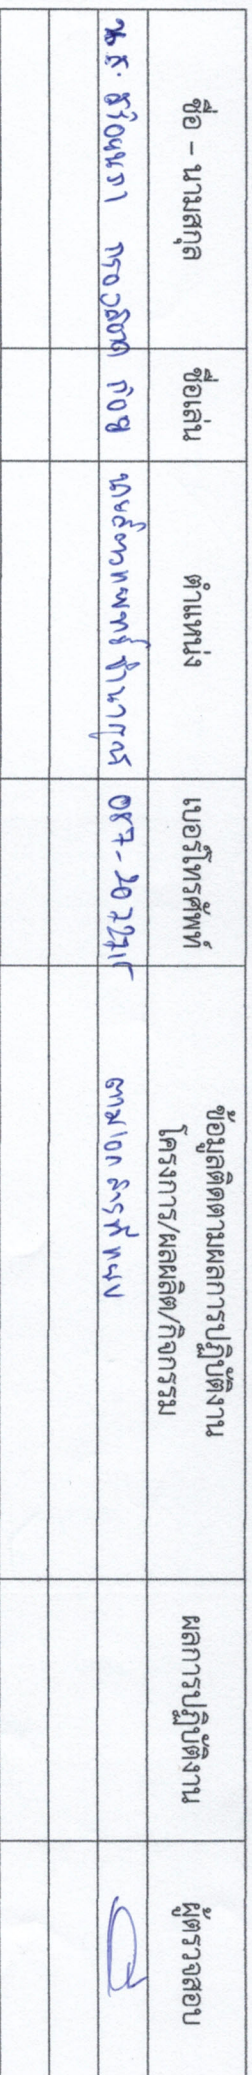 ชื่อ - นามสกุล ชื่อเล่น ตำแหน่ง เบอร์โทรศัพท์ ข้อมูลติดตามผลการปฏิบัติงาน
โครงการ/ผลผลิต/กิจกรรม ผลการปฏิบัติงาน ผู้ตรวจสอบ
น.ส. ก้อย นายสัตวแพทย์ชำนาญการ 087- ตามเอกสารที่แนบ